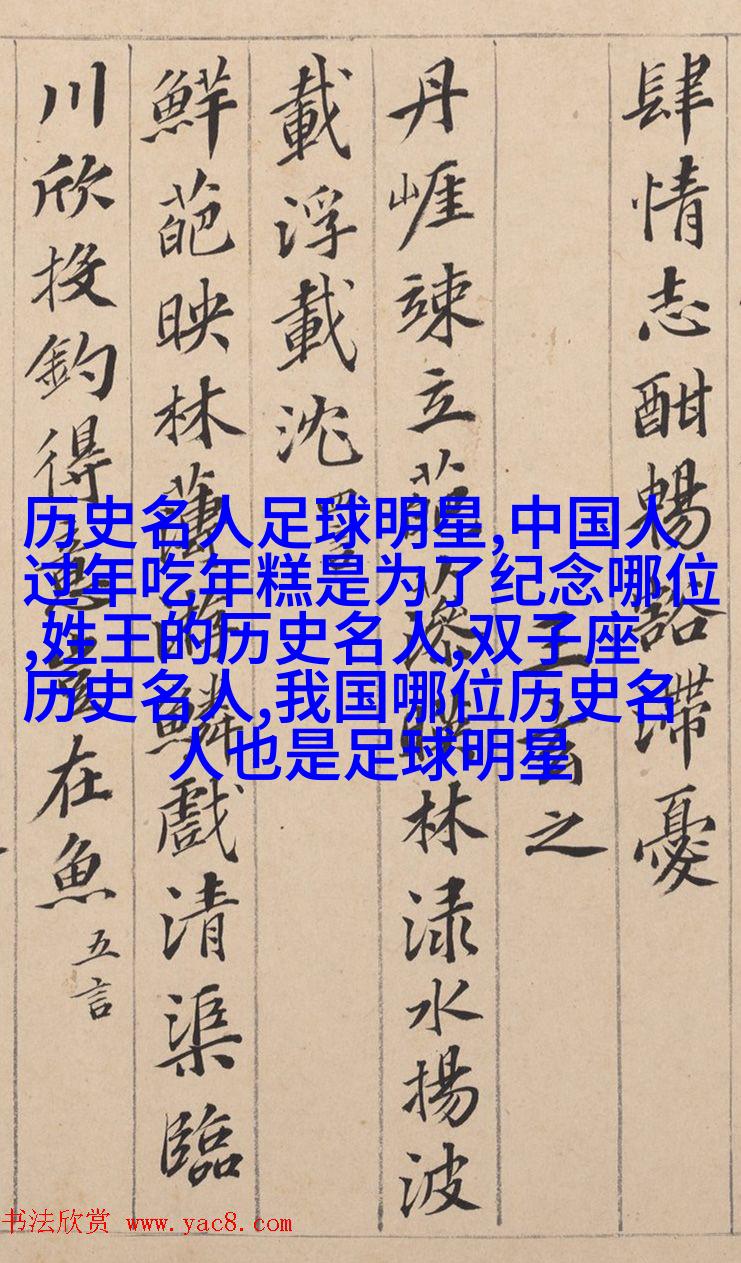 肆情志酣暢豁滯憂
王玄之
丹崖竦立葩藻映林淥水揚波
載浮載沈
鮮葩映林薄游鱗戲清渠臨
川欣投釣得意豈在魚 五言
历史名人足球明星,中国人
过年吃年糕是为了纪念哪位
,姓王的历史名人,双子座
历史名人,我国哪位历史名
人也是足球明星
书法欣赏 www.yac8.com